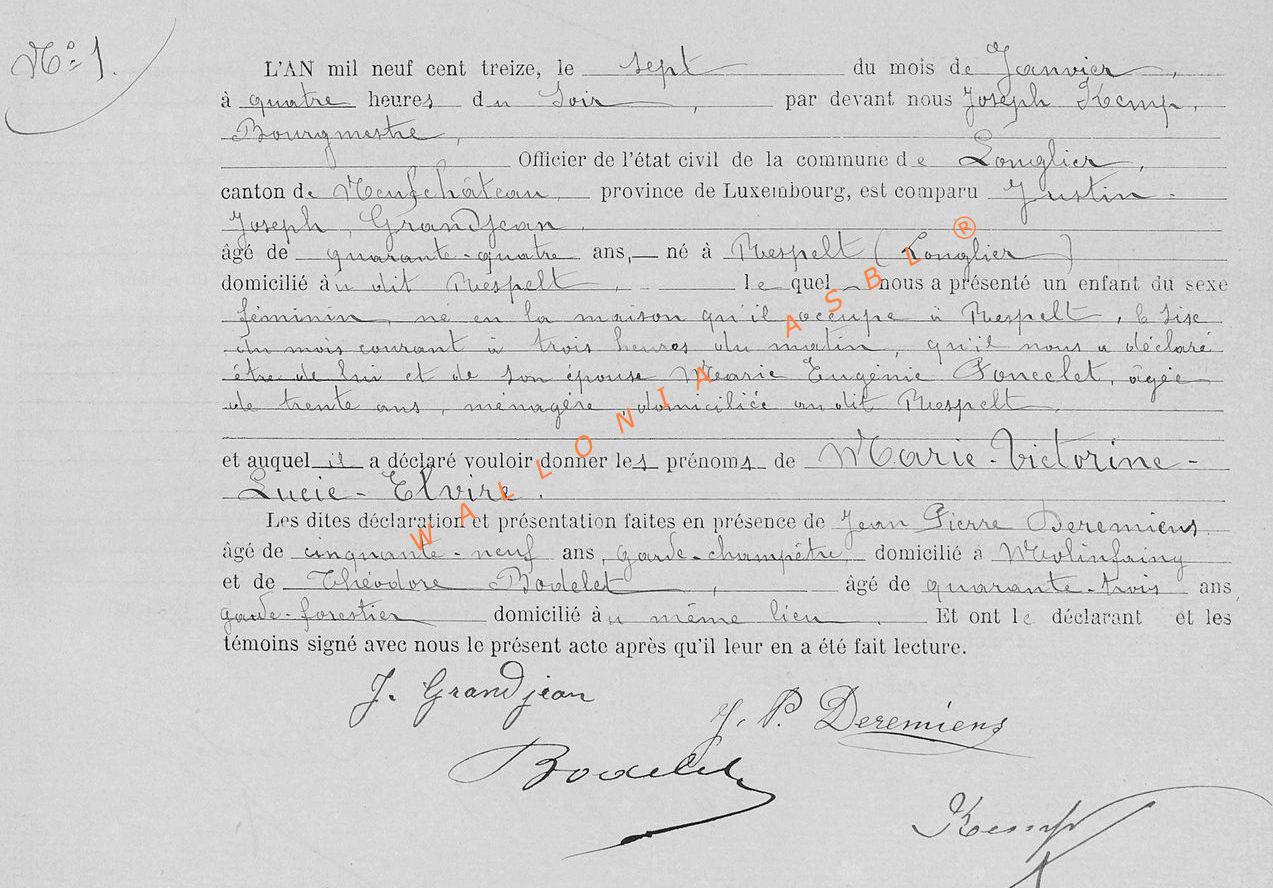 N° 1.
L'AN mil neuf cent treize, le sept du mois de Janvier,
à quatre heures du Soir, par devant nous Joseph Kemp,
Bourgmestre,
Officier de l'état civil de la commune de Longlier,
canton de Neufchâteau, province de Luxembourg, est comparu Justin
Joseph Grandjean.
âgé de quarante-quatre ans, né à Respelt (Longlier)
domicilié au dit Respelt, lequel nous a présenté un enfant du sexe
féminin, né en la maison qu'il occupe à Respelt, le six
du mois courant à trois heures du matin, qu'il nous a déclaré
être de lui et de son épouse Marie Eugénie Poncelet, âgée
de trente ans, ménagère, domiciliée audit Respelt.
et auquel il a déclaré vouloir donner les prénoms de Marie-Victorine-
Lucie-Elvire.
Les dites déclaration et présentation faites en présence de Jean Pierre Deremiens
âgé de cinquante-neuf ans, garde-champêtre, domicilié à Molinfaing
et de Théodore Bodelet, âgé de quarante-trois ans,
garde-forestier domicilié au même lieu. Et ont le déclarant et les
témoins signé avec nous le présent acte après qu'il leur en a été fait lecture.
J. Grandjean
J. P. Deremiens
Bodelet
Kemp
WALLONIA ASBL ®